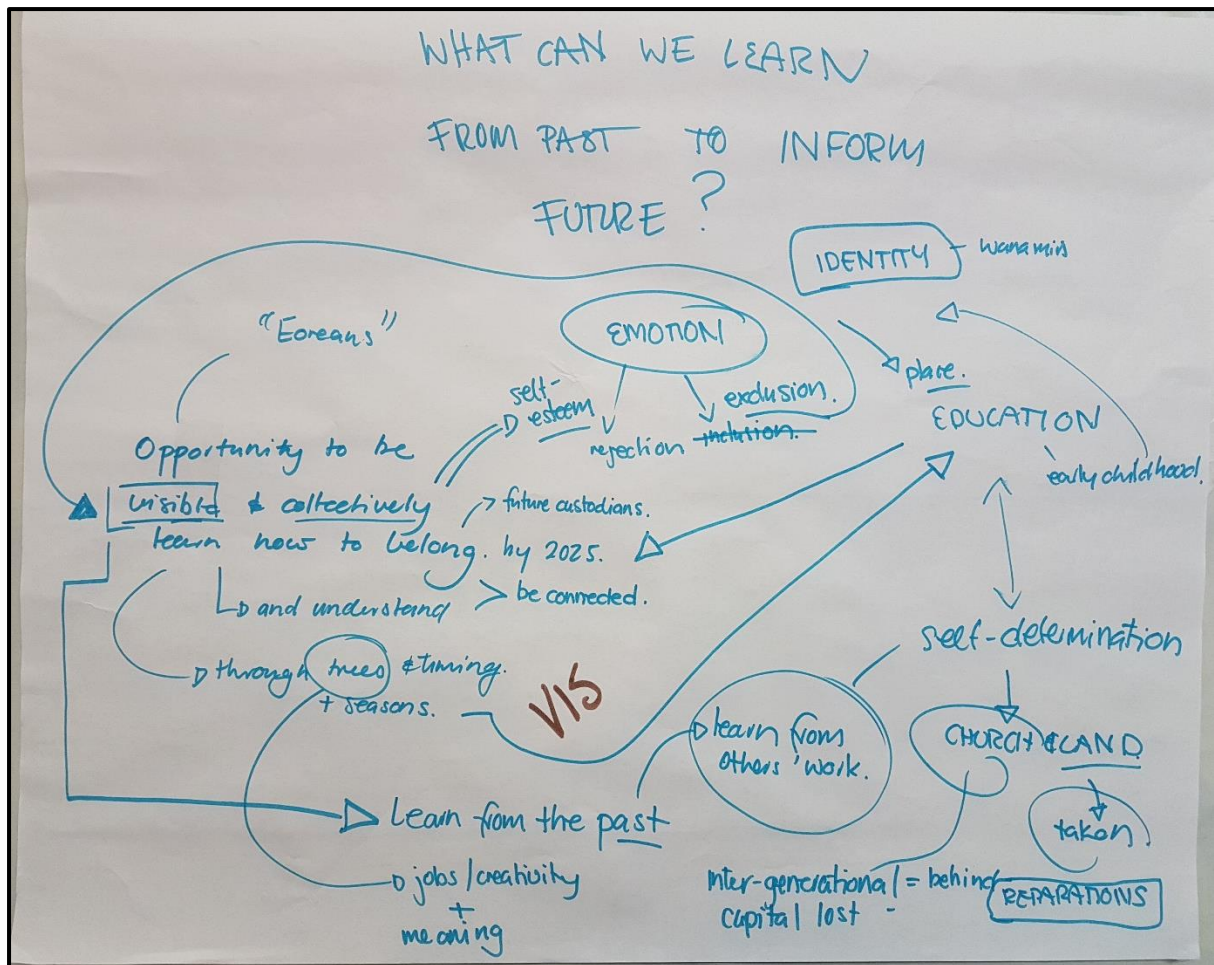 WHAT CAN WE LEARN
FROM PAST TO INFORM
FUTURE ?
IDENTITY - wanamirs
"Eoreans"
EMOTION
place.
self-
esteem
exclusion.
rejection inclusion.
EDUCATION
early childhood.
Opportunity to be
visible & collectively
learn how to belong. by 2025.
future custodians.
be connected.
and understand
through trees & timing.
+ seasons.
VIS
self-determination
learn from
others' work.
CHURCH & LAND
taken
REPARATIONS
Learn from the past
jobs/creativity
+
meaning
Inter-generational = behind
capital lost -